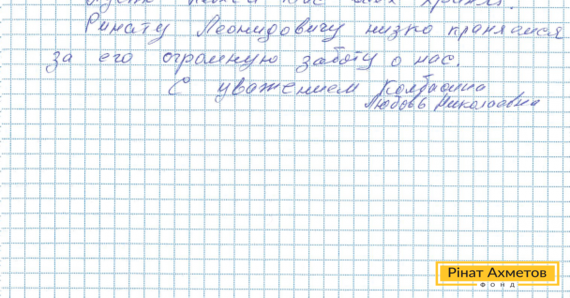 Ринату Леонидовичу низко кланяемся
за его огромную заботу о нас.
С уважением Колбасина
Любовь Николаевна
Рінат Ахметов
ФОНД